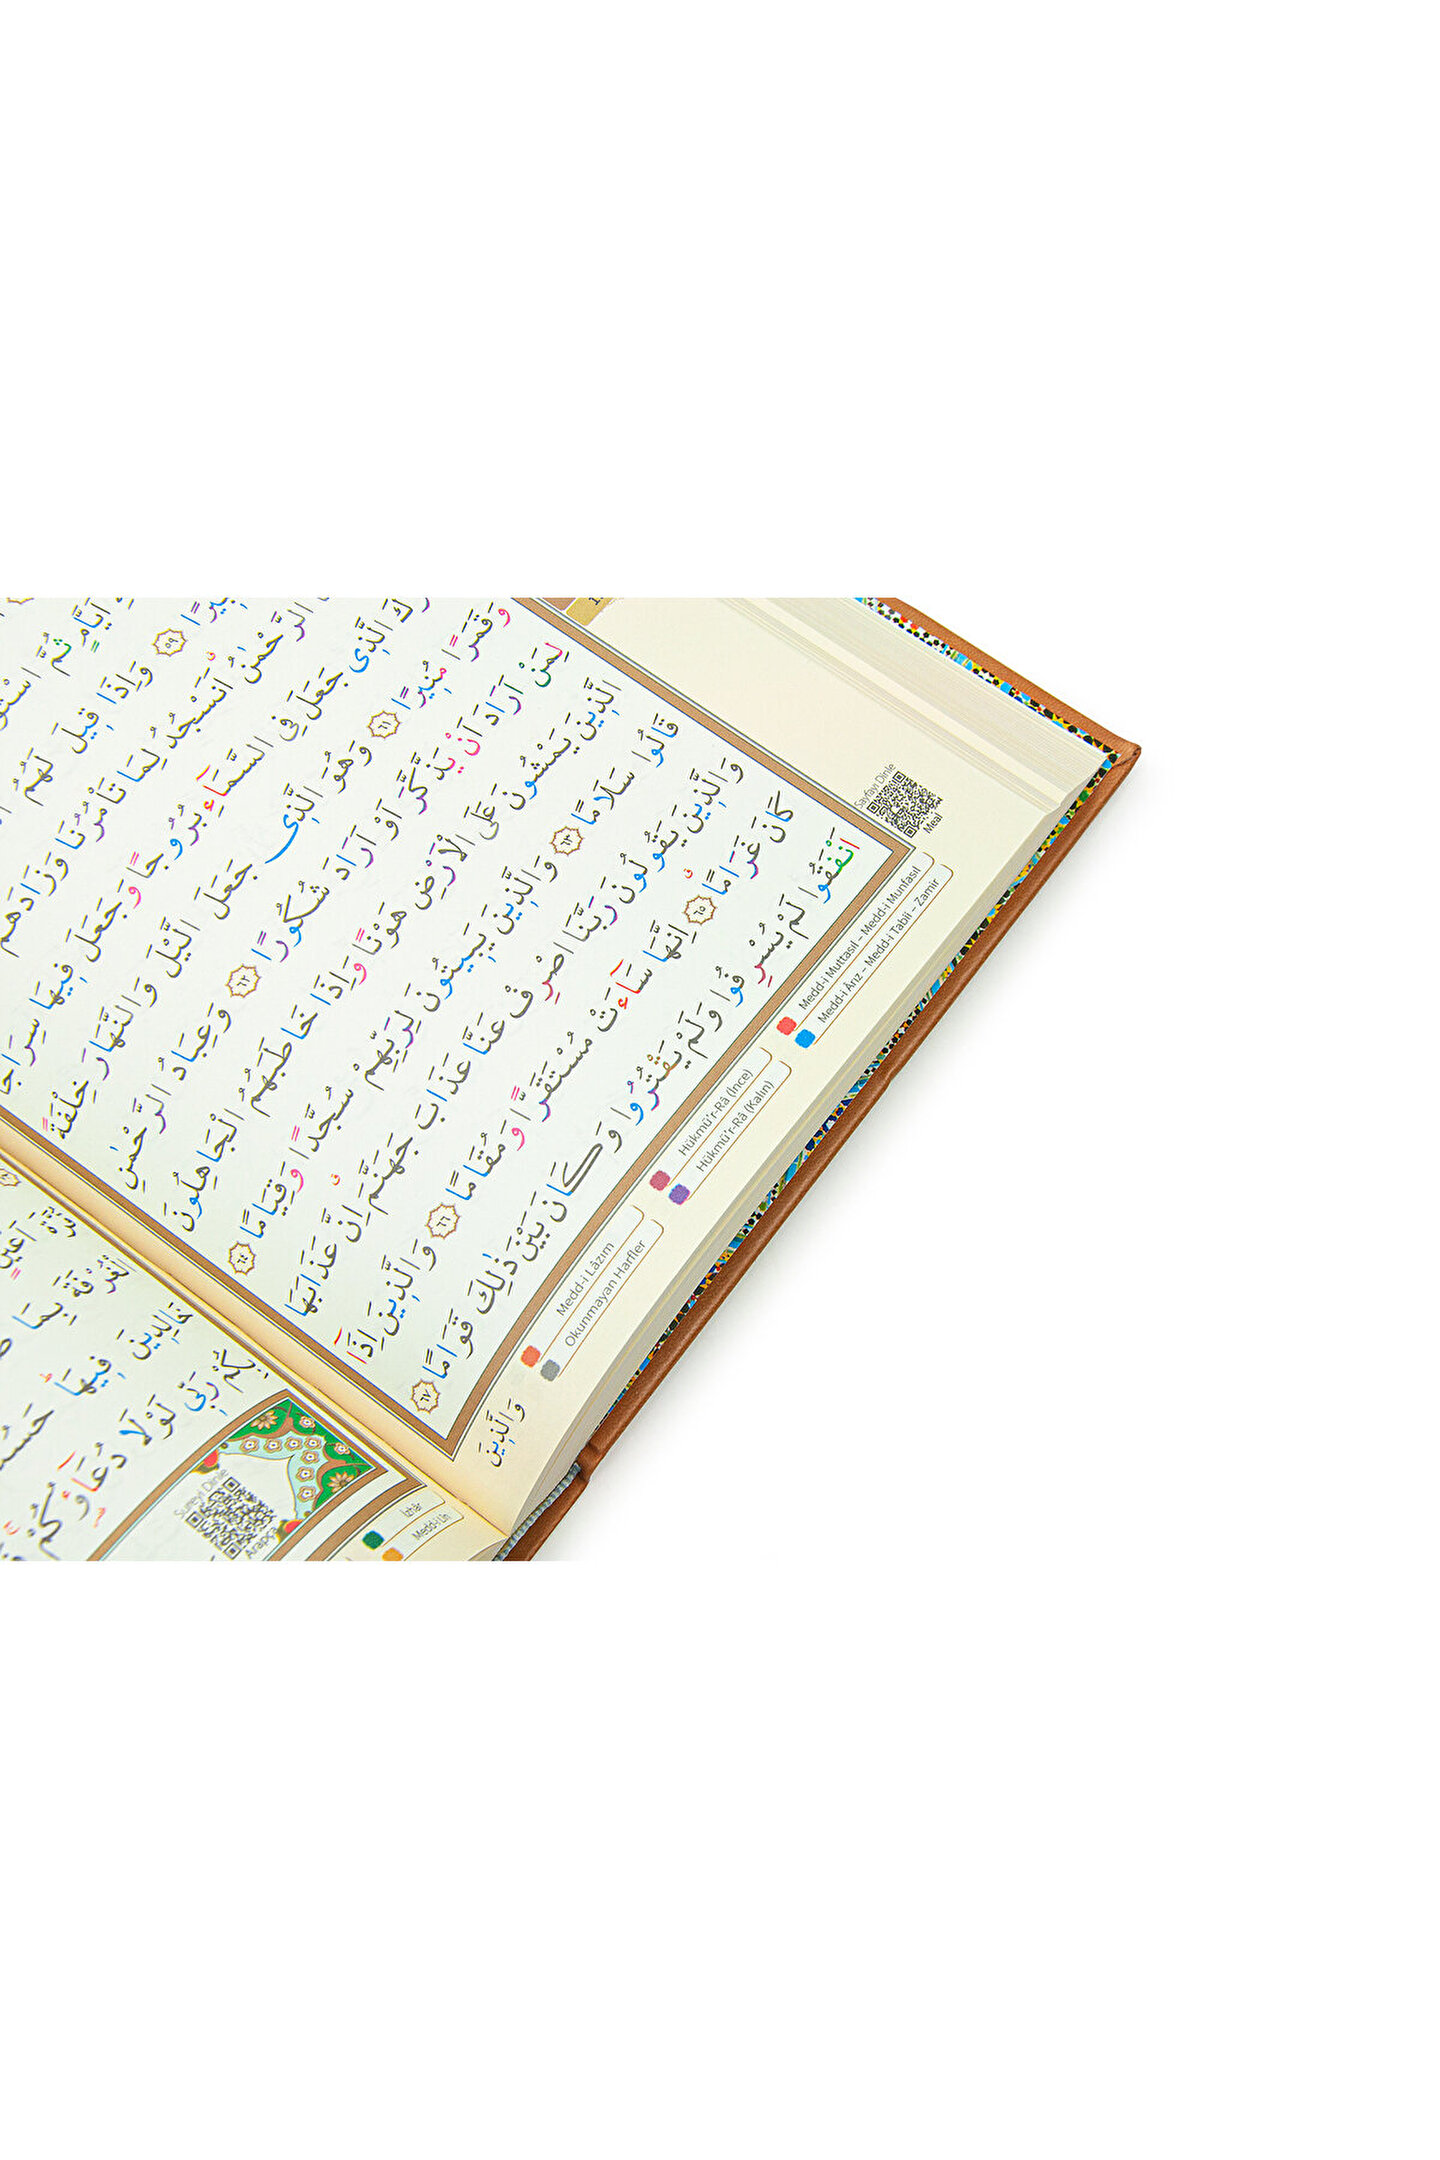 اَيَّامٍ ثُمَّ
٥٩ وَاِذَا قِيلَ لَهُمُ
الرَّحْمٰنُ اَنَسْجُدُ لِمَا تَأْمُرُنَا وَزَادَهُمْ
الَّذِى جَعَلَ فِى السَّمَٓاءِ بُرُوجًا وَجَعَلَ فِيهَا سِرَاجًا
وَقَمَرًا مُنِيرًا ٦١ وَهُوَ الَّذِى جَعَلَ الَّيْلَ وَالنَّهَارَ خِلْفَةً
لِمَنْ اَرَادَ اَنْ يَذَّكَّرَ اَوْ اَرَادَ شُكُورًا ٦٢ وَعِبَادُ الرَّحْمٰنِ
الَّذِينَ يَمْشُونَ عَلَى الْاَرْضِ هَوْنًا وَاِذَا خَاطَبَهُمُ الْجَاهِلُونَ
قَالُوا سَلَامًا ٦٣ وَالَّذِينَ يَبِيتُونَ لِرَبِّهِمْ سُجَّدًا وَقِيَامًا ٦٤
وَالَّذِينَ يَقُولُونَ رَبَّنَا اصْرِفْ عَنَّا عَذَابَ جَهَنَّمَ اِنَّ عَذَابَهَا
كَانَ غَرَامًا ٦٥ اِنَّهَا سَٓاءَتْ مُسْتَقَرًّا وَمُقَامًا ٦٦ وَالَّذِينَ اِذَٓا
اَنْفَقُوا لَمْ يُسْرِفُوا وَلَمْ يَقْتُرُوا وَكَانَ بَيْنَ ذٰلِكَ قَوَامًا ٦٧
وَالَّذِينَ
Sayfayı Dinle
Meal
Medd-i Muttasıl – Medd-i Munfasıl
Medd-i Ârız – Medd-i Tabii – Zamir
Hükmü'r-Râ (İnce)
Hükmü'r-Râ (Kalın)
Medd-i Lâzım
Okunmayan Harfler
الْغُرْفَةَ بِمَا
خَالِدِينَ فِيهَا
رَبِّى لَوْلَا دُعَٓاؤُكُمْ
Sureyi Dinle
Arapça
İzhâr
Medd-i Lîn